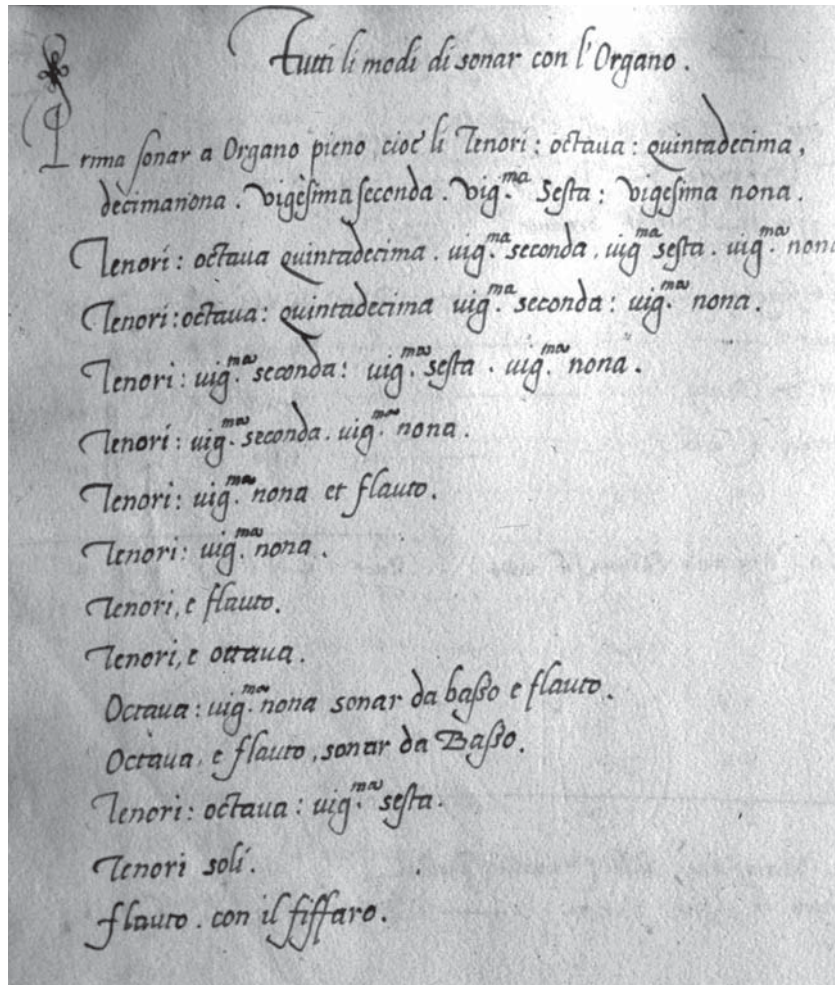 Tutti li modi di sonar con l'Organo.
Prima sonar a Organo pieno, cioe' li Tenori: octaua: quintadecima,
decimanona. Vigesima seconda. Vig.ma Sesta: Vigesima nona.
Tenori: octaua quintadecima. uig.ma seconda. uig.ma sesta. uig.ma nona
Tenori: octaua: quintadecima uig.ma seconda: uig.ma nona.
Tenori: uig.ma seconda: uig.ma sesta. uig.ma nona.
Tenori: uig.ma seconda. uig.ma nona.
Tenori: uig.ma nona et flauto.
Tenori: uig.ma nona.
Tenori, e flauto.
Tenori, e ottaua.
Octaua: uig.ma nona sonar da baſso e flauto.
Octaua, e flauto, sonar da Baſso.
Tenori: octaua: uig.ma sesta.
Tenori soli.
flauto. con il fiffaro.